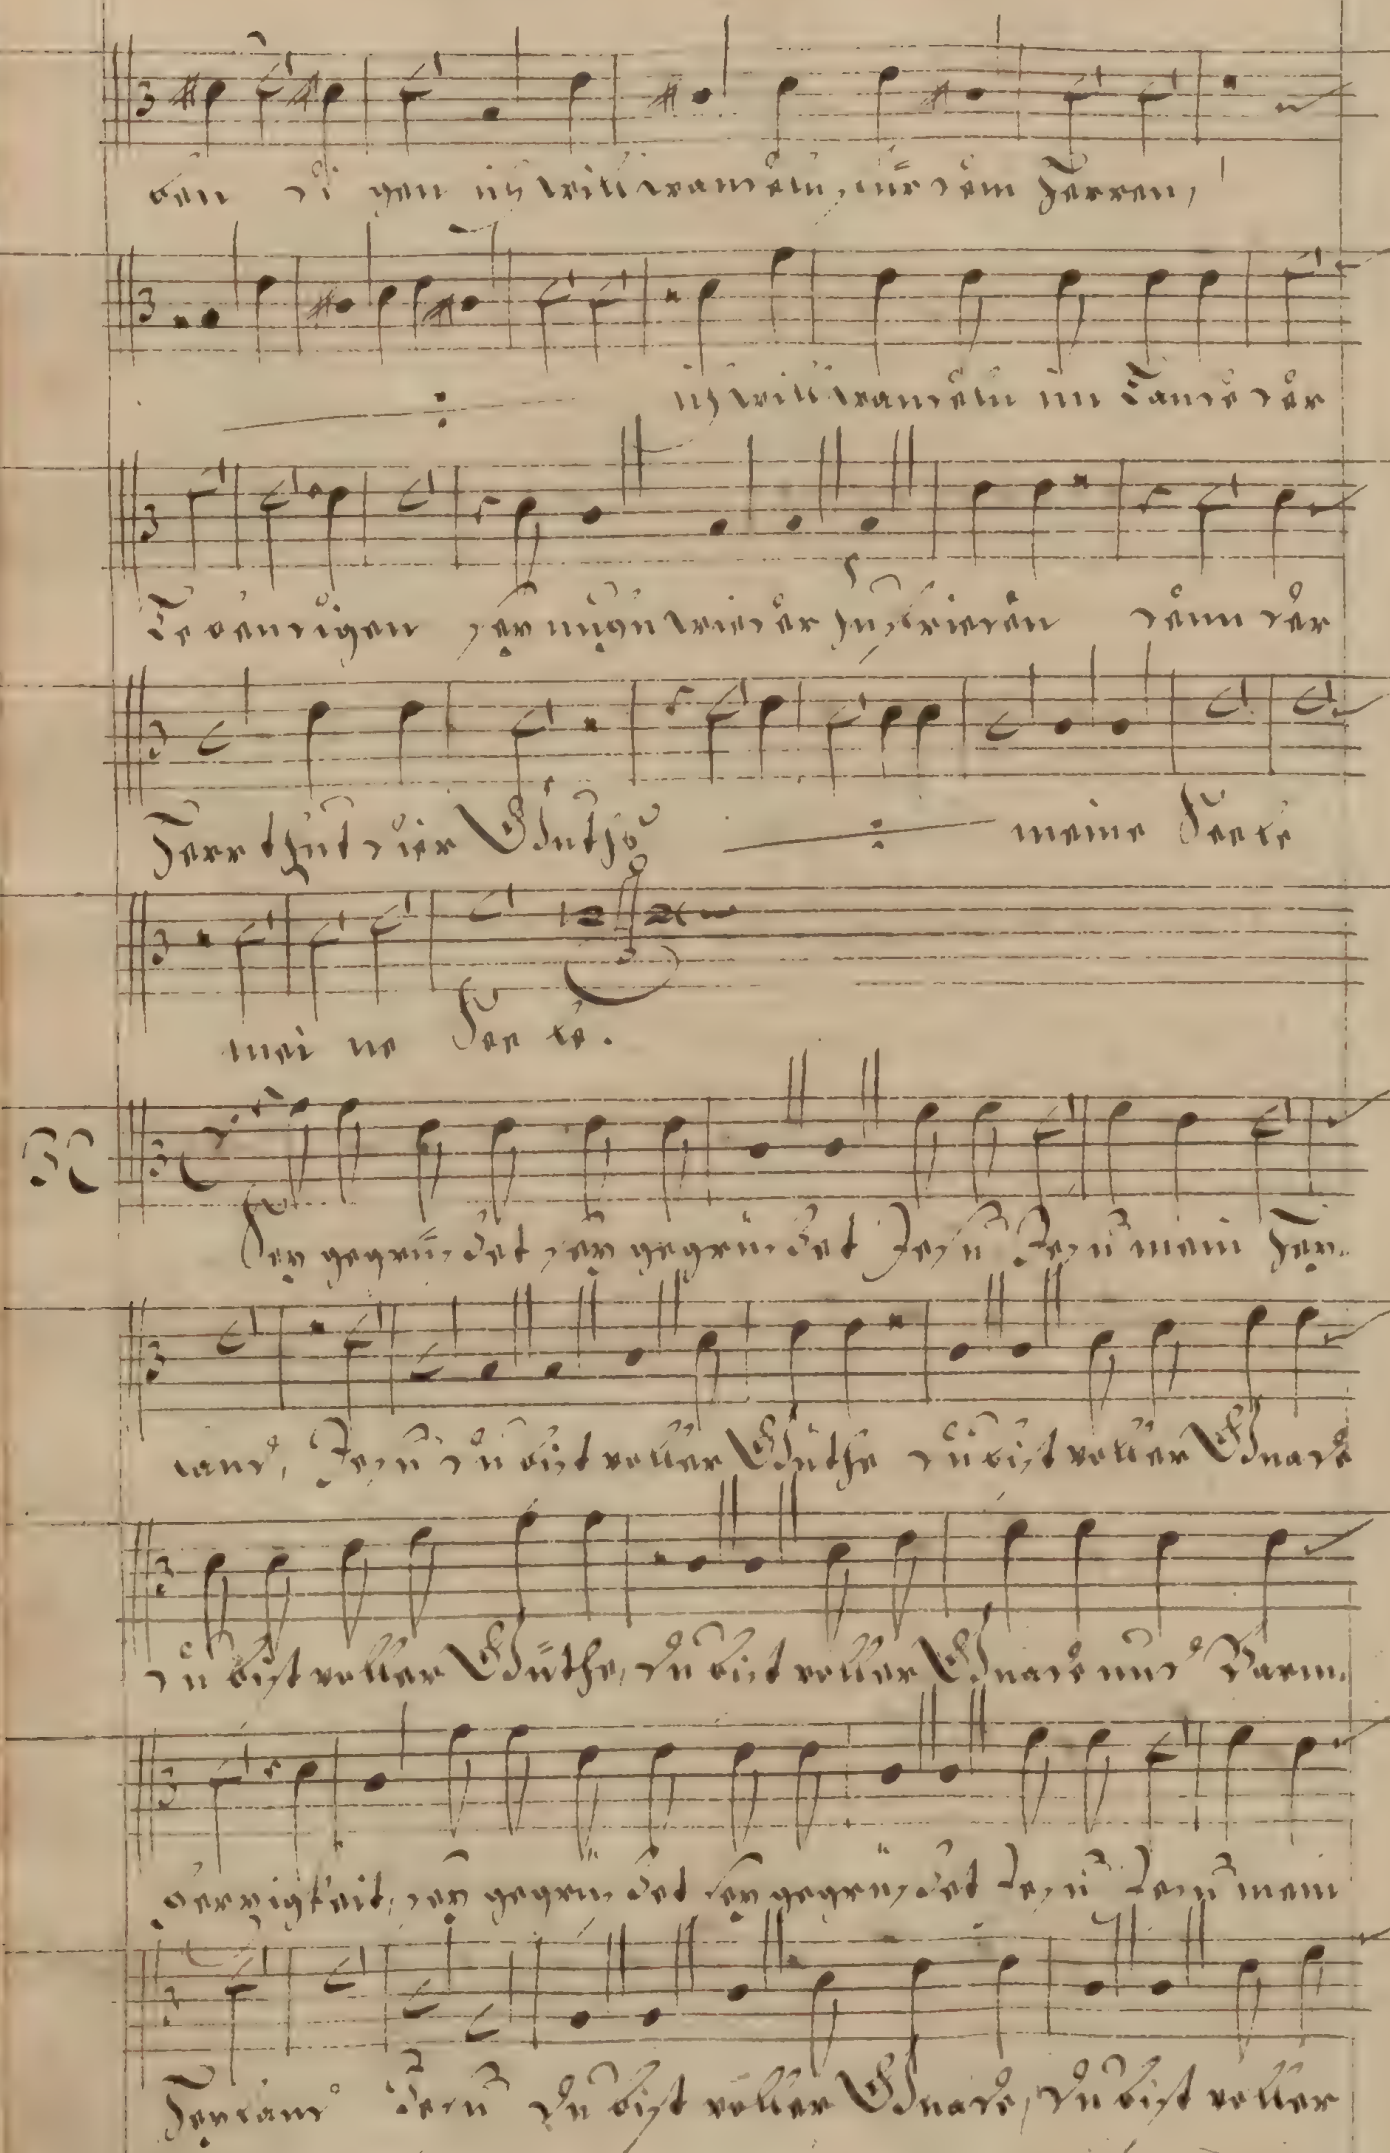 ben di gen ich will wandeln, für dem Herren,
ich will wandeln im Lande der
Lebendigen sey nuhn wieder zufrieden denn der
Herr thut dier Guths meine Seele
mei ne Seele.
Sey gegrüsset sey gegrüsset Jesu Jesu mein Hey-
land, Jesu du bist voller Güthe du bist voller Gnade
du bist voller Güthe, du bist voller Gnade und Barm-
hertzigkeit, sey gegrüsset sey gegrüsset Jesu Jesu mein
Heyland Jesu du bist voller Gnade, du bist voller